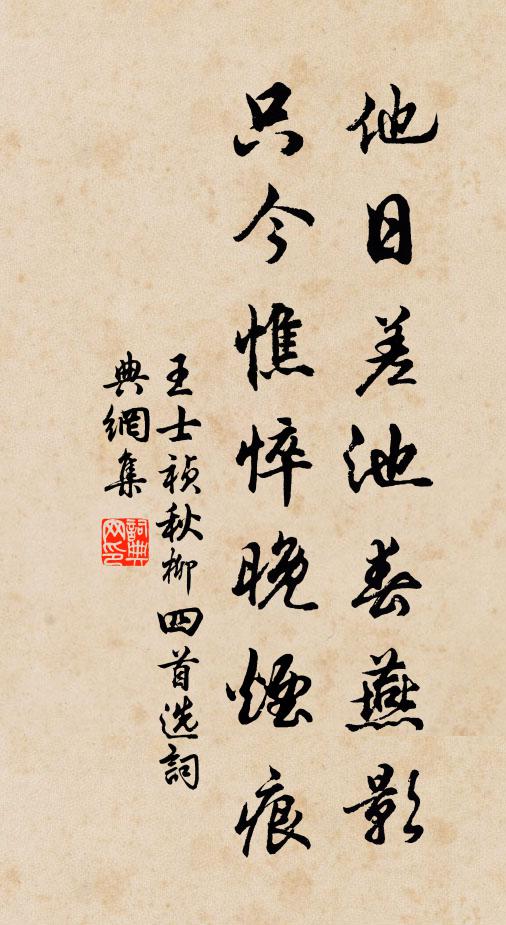 他日差池春燕影
只今憔悴晚煙痕
王士禎秋柳四首選詞
典網集
詞典網印